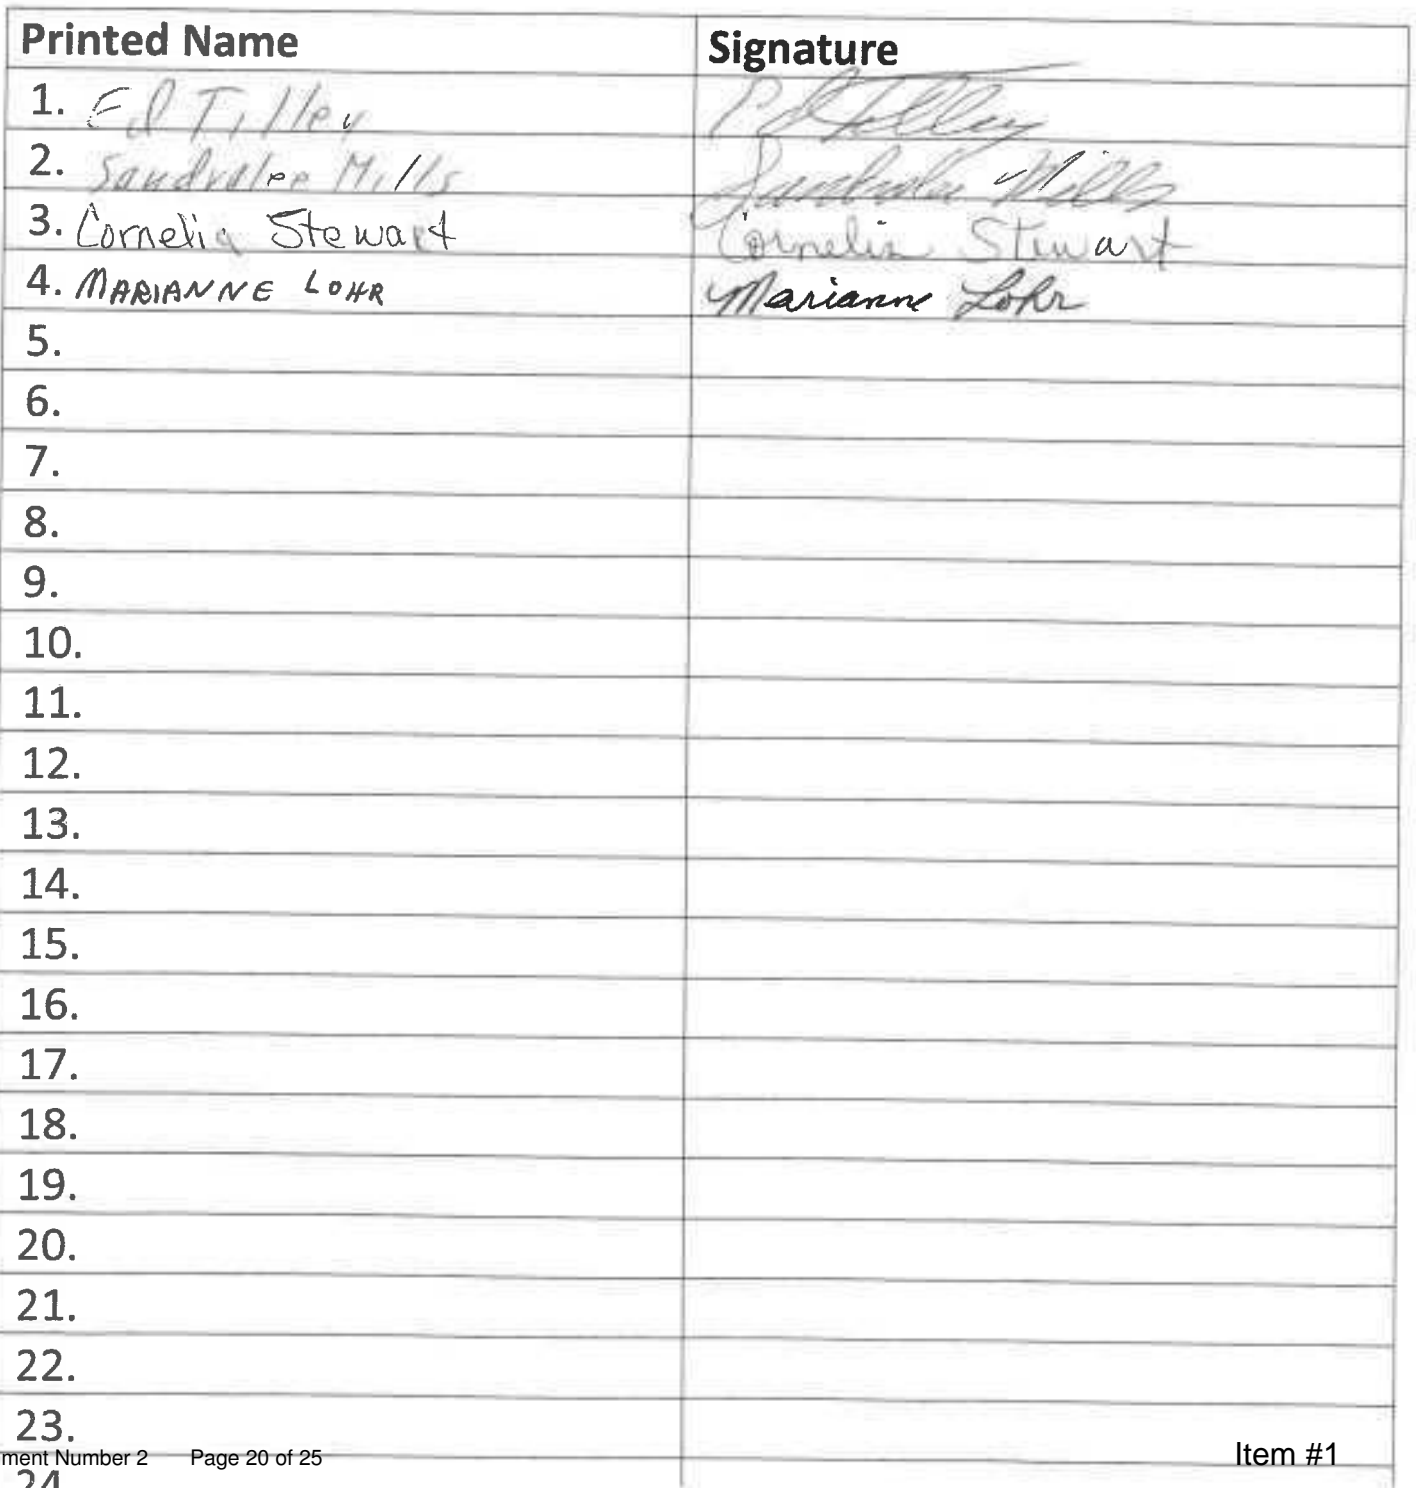 Printed Name Signature
1. Ed Tilley Ed Tilley
2. Sandralee Mills Sandralee Mills
3. Cornelia Stewart Cornelia Stewart
4. MARIANNE LOHR Marianne Lohr
5.
6.
7.
8.
9.
10.
11.
12.
13.
14.
15.
16.
17.
18.
19.
20.
21.
22.
23.
ment Number 2 Page 20 of 25 Item #1
24